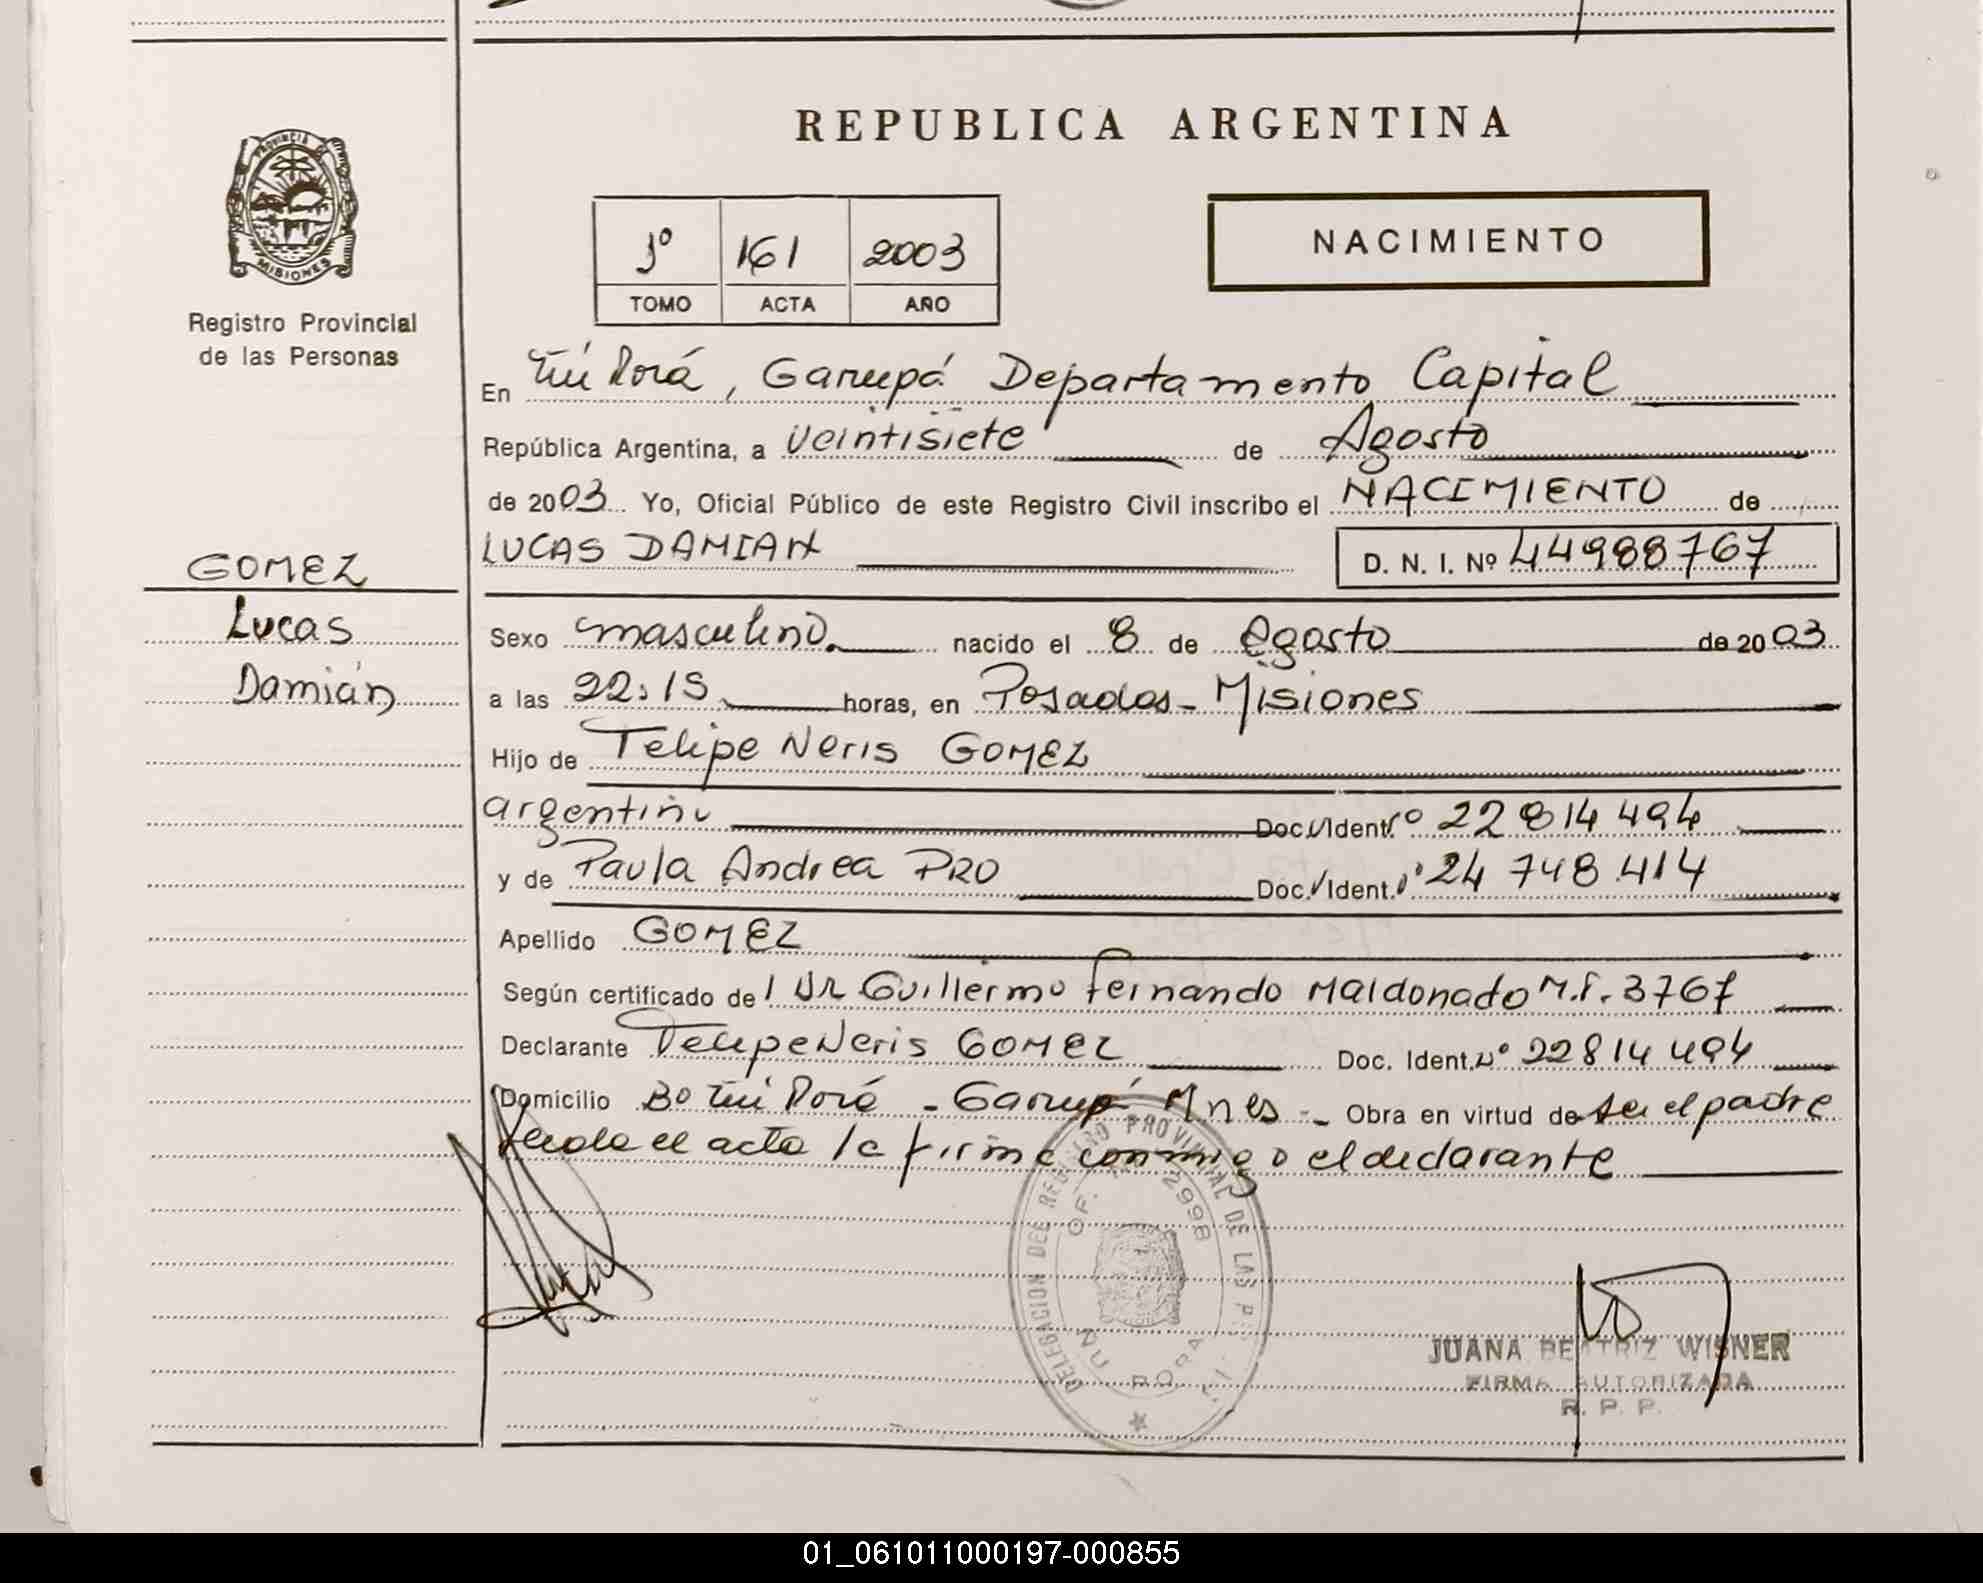 REPUBLICA ARGENTINA
PROVINCIA DE MISIONES
Registro Provincial
de las Personas
1º 161 2003
TOMO ACTA AÑO
NACIMIENTO
En Ñu Porá, Garupá Departamento Capital
República Argentina, a veintisiete de Agosto
de 2003 Yo, Oficial Público de este Registro Civil inscribo el NACIMIENTO de
LUCAS DAMIAN D. N. I. Nº 44988767
GOMEZ
Lucas
Damián
Sexo masculino. nacido el 8 de Agosto de 2003
a las 22:15 horas, en Posadas - Misiones
Hijo de Felipe Neris GOMEZ
argentino Doc. Ident. Nº 22 814 494
y de Paula Andrea PRO Doc. Ident. Nº 24 748 414
Apellido GOMEZ
Según certificado de l Dr Guillermo Fernando Maldonado M.P. 3767
Declarante Felipe Neris GOMEZ Doc. Ident. Nº 22814494
Domicilio Bº Ñu Porá - Garupá Mnes - Obra en virtud de ser el padre
leida el acta la firma conmigo el declarante
DELEGACION DEL REGISTRO PROVINCIAL DE LAS PER
OF. 2998
ÑU PORA
JUANA BEATRIZ WISNER
FIRMA AUTORIZADA
R. P. P.
01_061011000197-000855